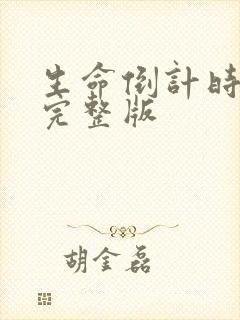 生命倒計時
完整版
胡金磊